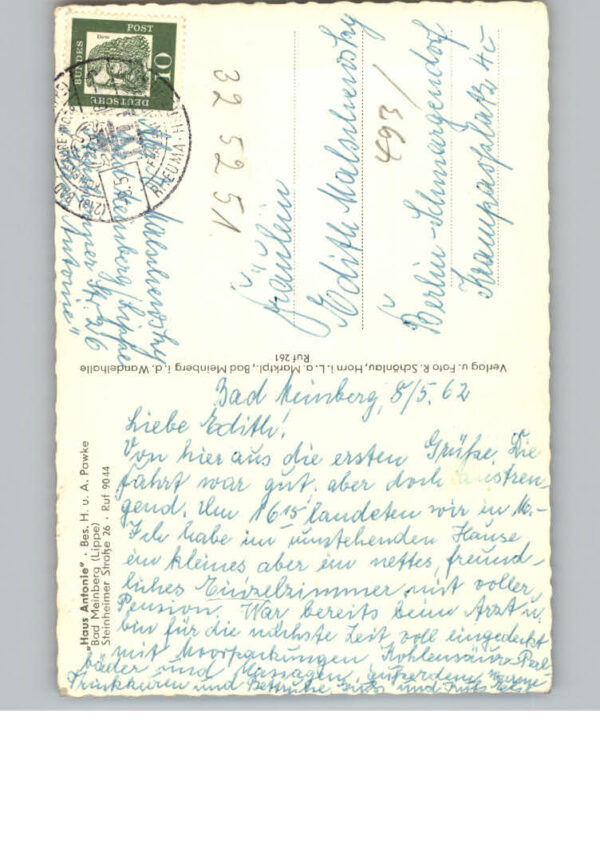 "Haus Antonie" · Bes. H. u. A. Pawke
Bad Meinberg (Lippe)
Steinheimer Straße 26 · Ruf 9044
Bad Meinberg, 8/5. 62
Liebe Edith!
Von hier aus die ersten Grüße. Die
Fahrt war gut, aber doch anstren-
gend. Um 16 15 landeten wir in M.-
Ich habe im umstehenden Hause
ein kleines aber ein nettes, freund-
liches Einzelzimmer mit voller
Pension. War bereits beim Arzt u.
bin für die nächste Zeit voll eingedeckt
mit Moorpackungen, Kohlensäure-
bäder und Massagen, außerdem
Trinkkuren und und
Verlag u. Foto R. Schönlau, Horn i. L. a. Marktpl., Bad Meinberg i. d. Wandelhalle
Ruf 261
DEUTSCHE BUNDESPOST
10
Malschewsky
Meinberg/Lippe
Str. 26
"Antonie"
32 52 51
Fräulein
Edith Malschewsky
493/
Berlin-Schmargendorf
Kranzerplatz 4c